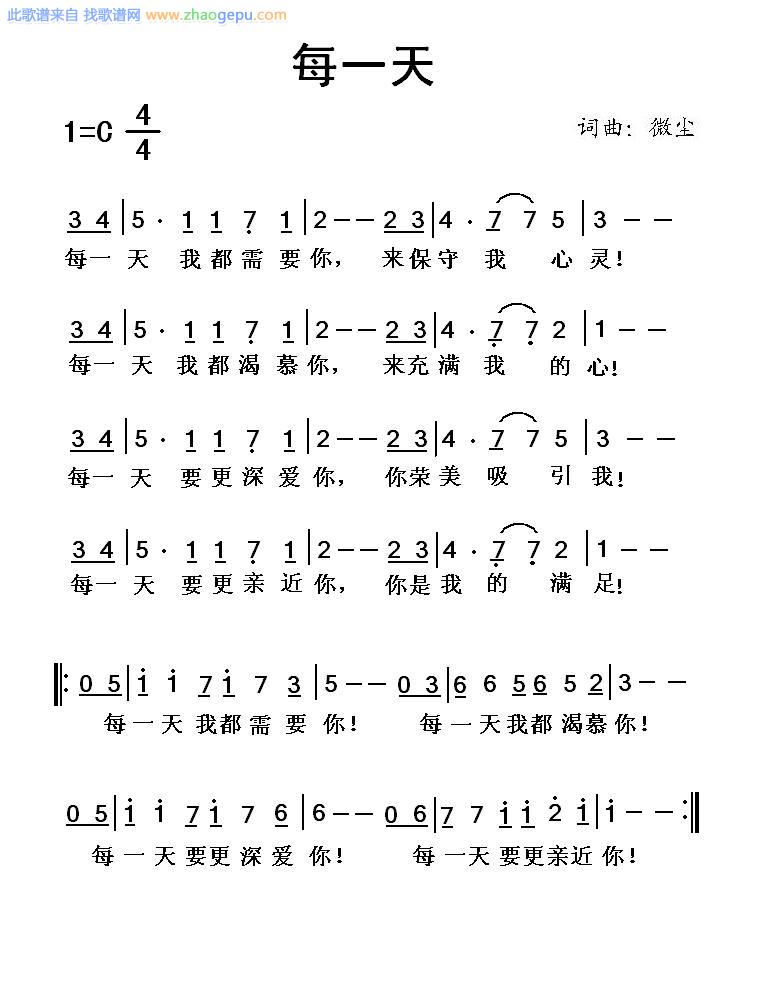 此歌谱来自 找歌谱网 www.zhaogepu.com
每一天
1=C 4/4
词曲：微尘
3 4 | 5 · 1 1 7 1 | 2 – – 2 3 | 4 · 7 7 5 | 3 – –
每一 天 我都需要你， 来保守 我 心灵！
3 4 | 5 · 1 1 7 1 | 2 – – 2 3 | 4 · 7 7 2 | 1 – –
每一 天 我都渴慕你， 来充满 我 的心！
3 4 | 5 · 1 1 7 1 | 2 – – 2 3 | 4 · 7 7 5 | 3 – –
每一 天 要更深爱你， 你荣美 吸 引我！
3 4 | 5 · 1 1 7 1 | 2 – – 2 3 | 4 · 7 7 2 | 1 – –
每一 天 要更亲近你， 你是我 的 满足！
‖: 0 5 | 1 1 7 1 7 3 | 5 – – 0 3 | 6 6 5 6 5 2 | 3 – –
每一天 我都需要 你！ 每一天我都渴慕你！
0 5 | 1 1 7 1 7 6 | 6 – – 0 6 | 7 7 1 1 2 1 | 1 – – :‖
每一天要更深爱 你！ 每一天要更亲近你！